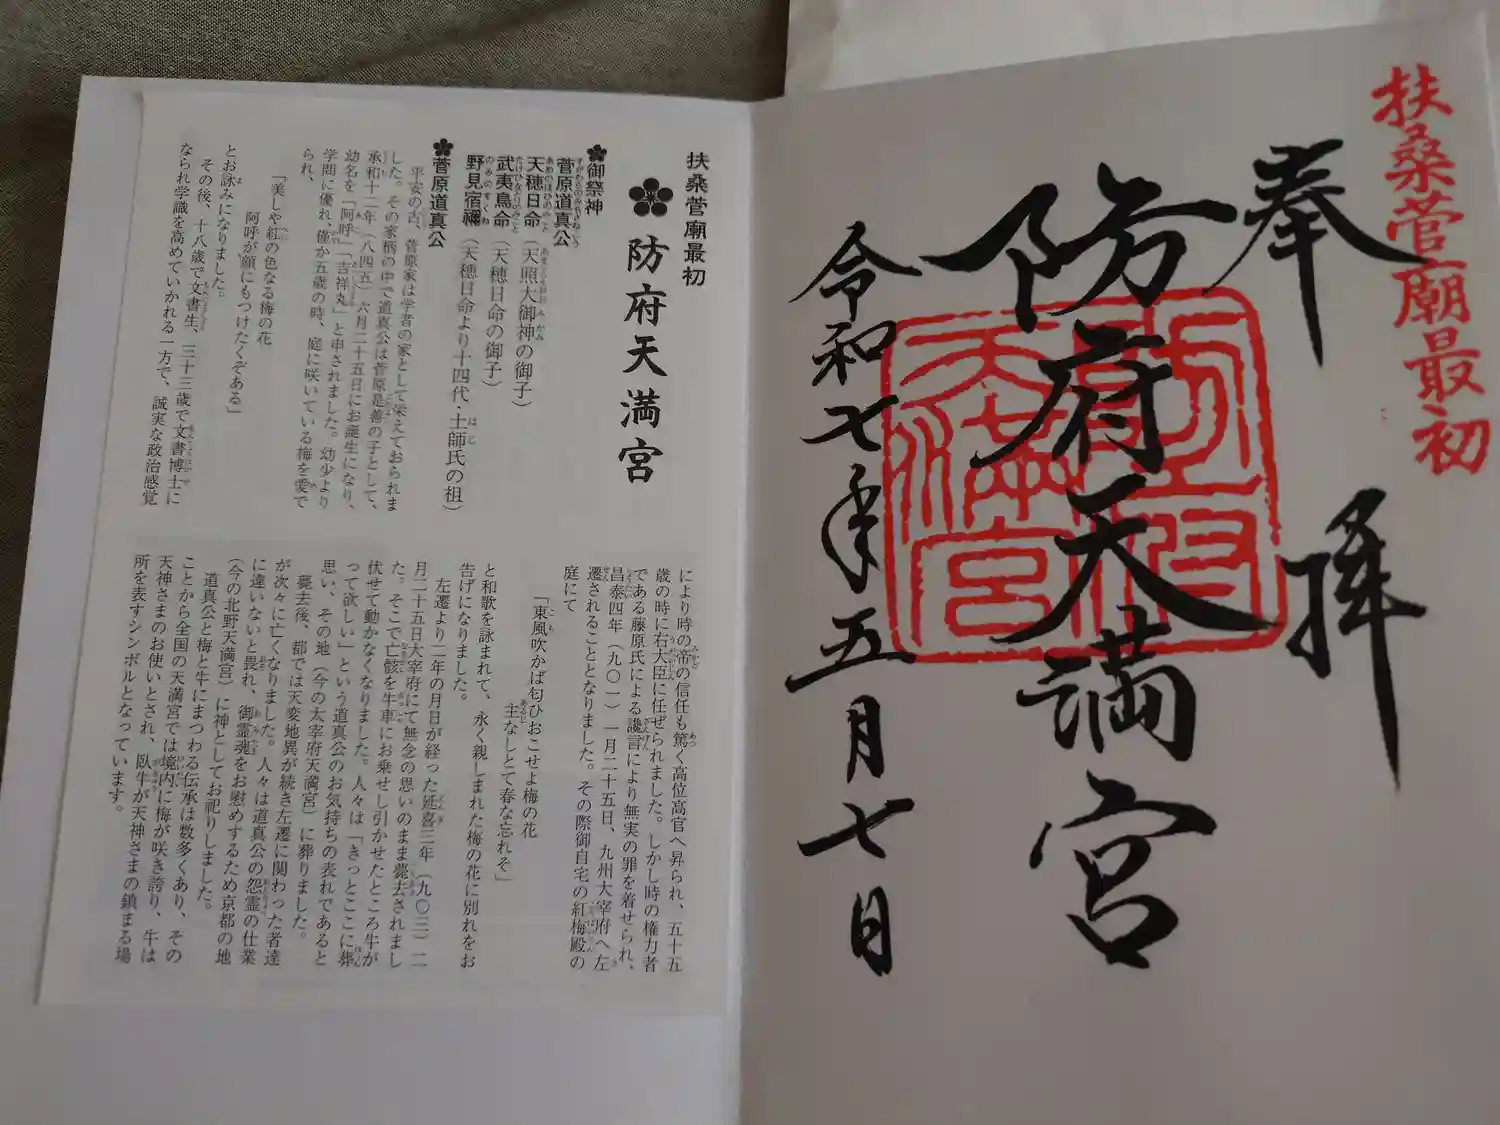 扶桑菅廟最初
奉拝
防府天満宮
令和七年五月七日
防府天満宮
扶桑菅廟最初
防府天満宮
御祭神
菅原道真公
天穂日命(天照大御神の御子)
武夷鳥命(天穂日命の御子)
野見宿禰(天穂日命より十四代・土師氏の祖)
菅原道真公
平安の古、菅原家は学者の家として栄えておられま
した。その家柄の中で道真公は菅原是善の子として、
承和十二年(八四五)六月二十五日にお誕生になり、
幼名を「阿呼」「吉祥丸」と申されました。幼少より
学問に優れ、僅か五歳の時、庭に咲いている梅を愛で
られ、
「美しや紅の色なる梅の花
阿呼が顔にもつけたくぞある」
とお詠みになりました。
その後、十八歳で文書生、三十三歳で文書博士に
なられ学識を高めていかれる一方で、誠実な政治感覚
により時の帝の信任も篤く高位高官へ昇られ、五十五
歳の時に右大臣に任ぜられました。しかし時の権力者
である藤原氏による讒言により無実の罪を着せられ、
昌泰四年(九〇一)一月二十五日、九州大宰府へ左
遷されることとなりました。その際御自宅の紅梅殿の
庭にて
「東風吹かば匂ひおこせよ梅の花
主なしとて春な忘れそ」
と和歌を詠まれて、永く親しまれた梅の花に別れをお
告げになりました。
左遷より二年の月日が経った延喜三年(九〇三)二
月二十五日大宰府にて無念の思いのまま薨去されまし
た。そこで亡骸を牛車にお乗せし引かせたところ牛が
伏せて動かなくなりました。人々は「きっとここに葬
って欲しい」という道真公のお気持ちの表れであると
思い、その地(今の太宰府天満宮)に葬りました。
薨去後、都では天変地異が続き左遷に関わった者達
が次々に亡くなりました。人々は道真公の怨霊の仕業
に違いないと畏れ、御霊魂をお慰めするため京都の地
(今の北野天満宮)に神としてお祀りしました。
道真公と梅と牛にまつわる伝承は数多くあり、その
ことから全国の天満宮では境内に梅が咲き誇り、牛は
天神さまのお使いとされ、臥牛が天神さまの鎮まる場
所を表すシンボルとなっています。